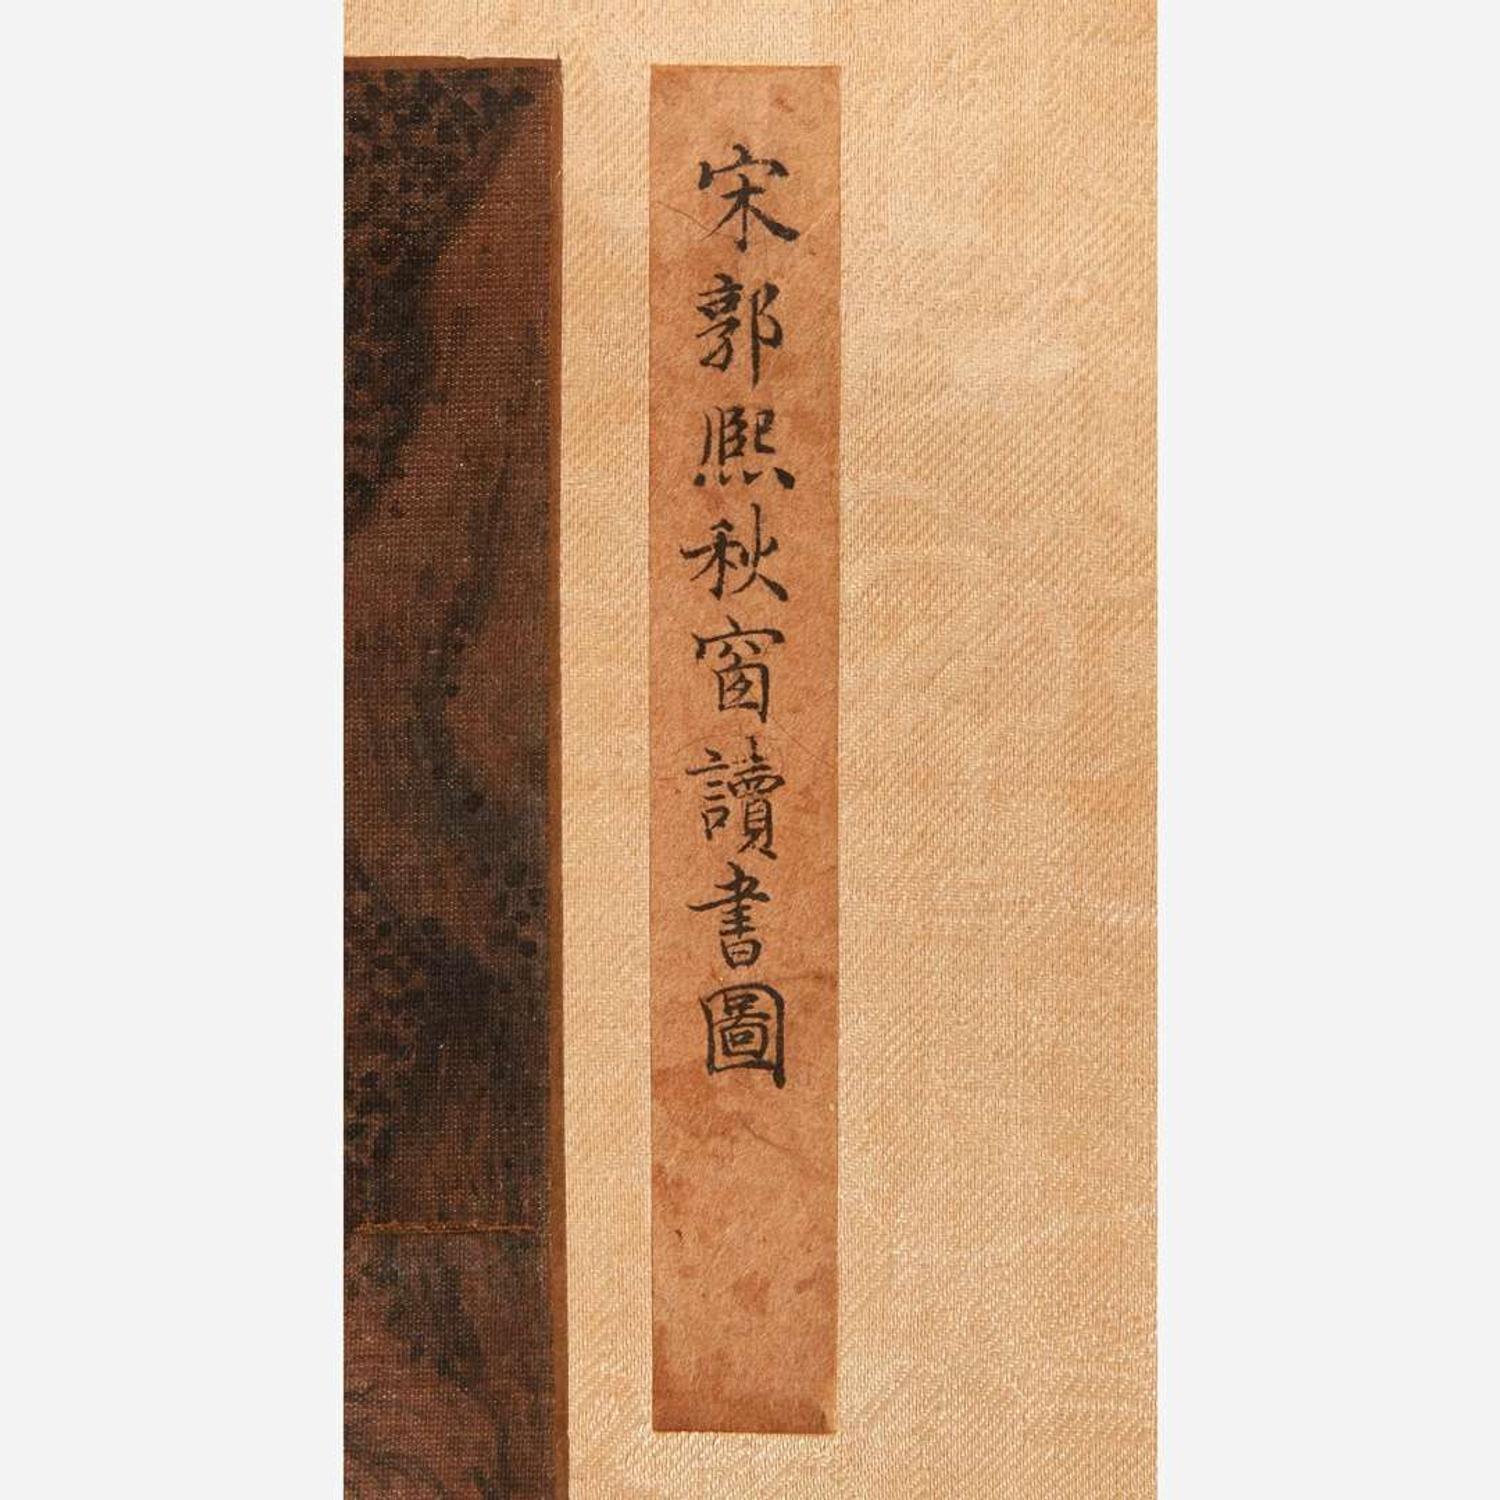 宋郭熙秋窗讀書圖